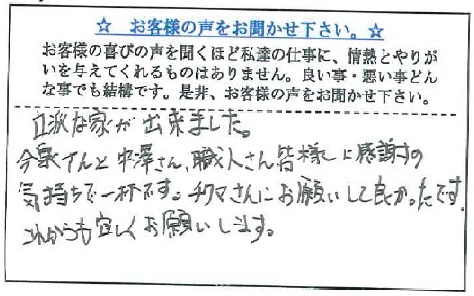 ☆ お客様の声をお聞かせ下さい。☆
お客様の喜びの声を聞くほど私達の仕事に、情熱とやりが
いを与えてくれるものはありません。良い事・悪い事どん
な事でも結構です。是非、お客様の声をお聞かせ下さい。
立派な家が出来ました。
今泉さんと中澤さん、職人さん皆様に感謝の
気持ちで一杯です。チクマさんにお願いして良かったです
これからも宜しくお願いします。